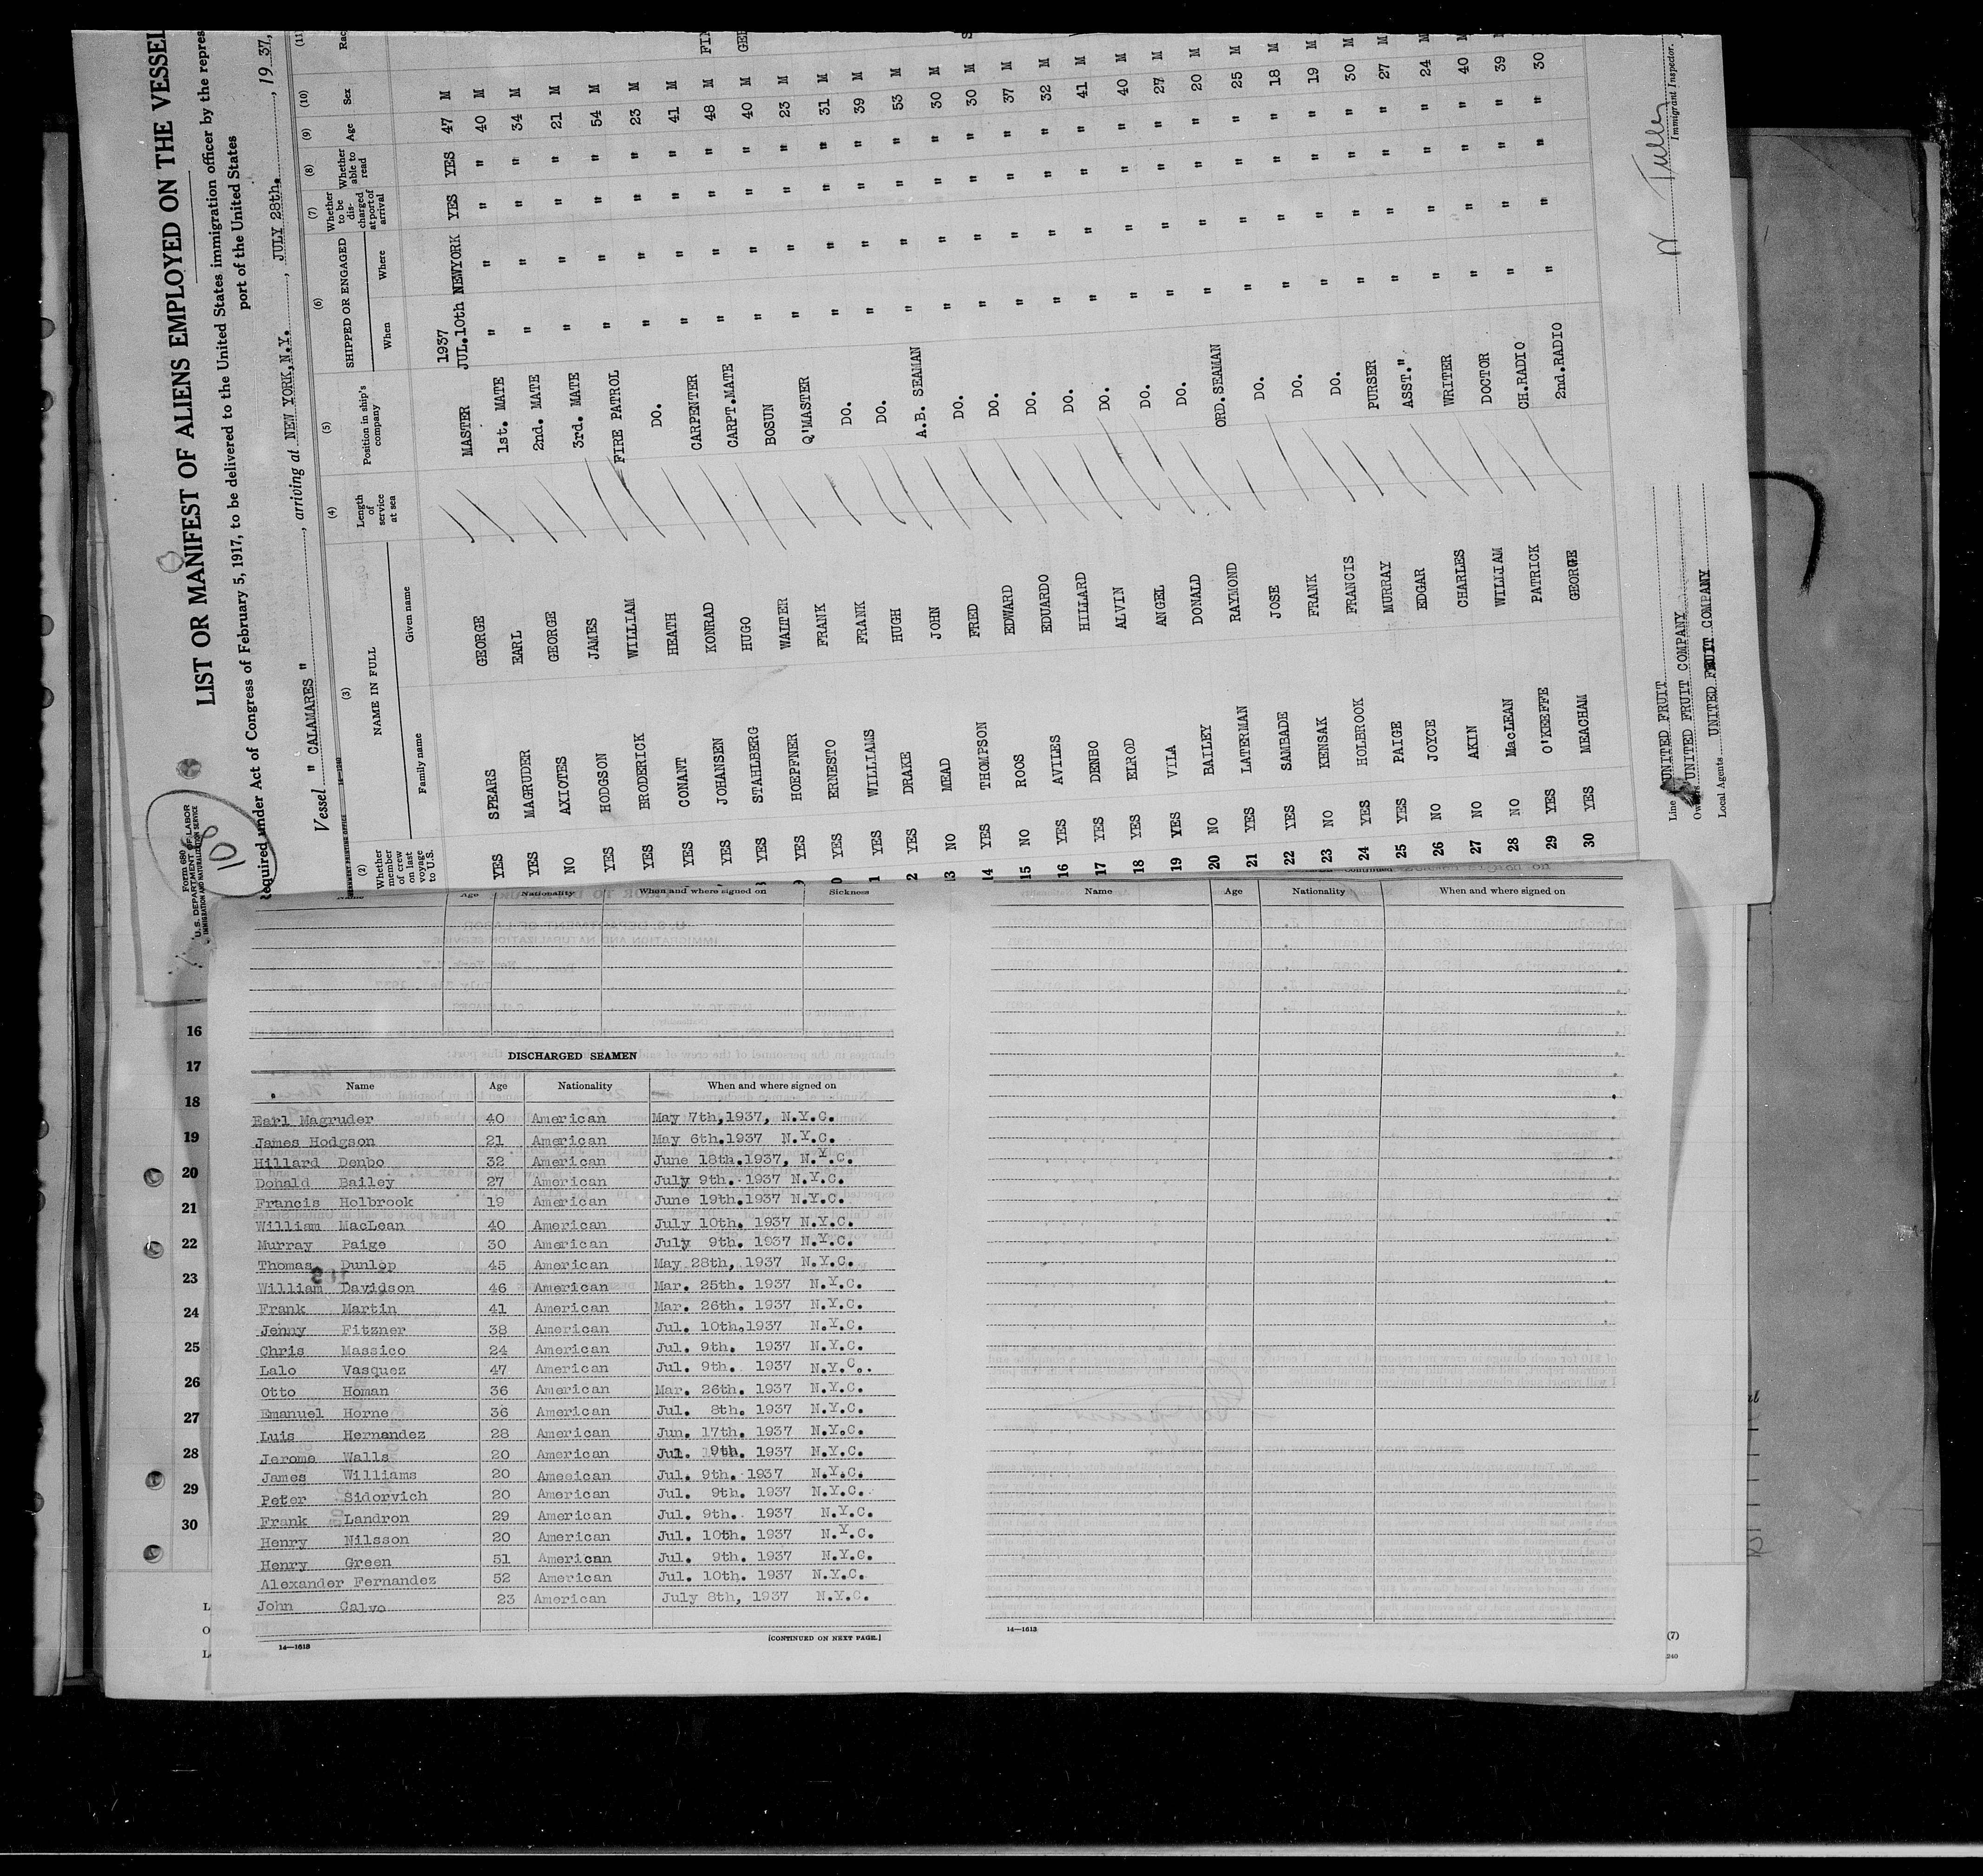 Form 680
U.S. DEPARTMENT OF LABOR
IMMIGRATION AND NATURALIZATION SERVICE
100
LIST OR MANIFEST OF ALIENS EMPLOYED ON THE VESSEL
Required under Act of Congress of February 5, 1917, to be delivered to the United States immigration officer by the repres
port of the United States
Vessel " CALAMARES " , arriving at NEW YORK,N.Y. , JULY 28th. , 19 37,
(2) (3) (4) (5) (6) (7) (8) (9) (10) (11)
Whether member of crew on last voyage to U.S. NAME IN FULL Family name Given name Length of service at sea Position in ship's company SHIPPED OR ENGAGED When Where Whether to be discharged at port of arrival Whether able to read Age Sex Rac
1937
YES SPEARS GEORGE MASTER JUL.10th NEWYORK YES YES 47 M
YES MAGRUDER EARL 1st. MATE " " " " 40 M
NO AXIOTES GEORGE 2nd. MATE " " " " 34 M
YES HODGSON JAMES 3rd. MATE " " " " 21 M
YES BRODERICK WILLIAM FIRE PATROL " " " " 54 M
YES CONANT HEATH DO. " " " " 23 M
YES JOHANSEN KONRAD CARPENTER " " " " 41 M
YES STAHLBERG HUGO CARPT.MATE " " " " 48 M FIN
YES HOEPFNER WALTER BOSUN " " " " 40 M GER
0 YES ERNESTO FRANK Q'MASTER " " " " 23 M
1 YES WILLIAMS FRANK DO. " " " " 31 M
2 YES DRAKE HUGH DO. " " " " 39 M
13 NO MEAD JOHN A.B. SEAMAN " " " " 53 M
14 YES THOMPSON FRED DO. " " " " 30 M
15 NO ROOS EDWARD DO. " " " " 30 M
16 YES AVILES EDUARDO DO. " " " " 37 M
17 YES DENBO HILLARD DO. " " " " 32 M
18 YES ELROD ALVIN DO. " " " " 41 M
19 YES VILA ANGEL DO. " " " " 40 M
20 NO BAILEY DONALD DO. " " " " 27 M
21 YES LATERMAN RAYMOND ORD.SEAMAN " " " " 20 M
22 YES SAMBADE JOSE DO. " " " " 25 M
23 NO KENSAK FRANK DO. " " " " 18 M
24 YES HOLBROOK FRANCIS DO. " " " " 19 M
25 YES PAIGE MURRAY PURSER " " " " 30 M
26 NO JOYCE EDGAR ASST." " " " " 27 M
27 NO AKIN CHARLES WRITER " " " " 24 M
28 NO MacLEAN WILLIAM DOCTOR " " " " 40 M
29 YES O'KEEFFE PATRICK CH.RADIO " " " " 39 M
30 YES MEACHAM GEORGE 2nd.RADIO " " " " 30
Line UNITED FRUIT
Owners UNITED FRUIT COMPANY
Local Agents UNITED FRUIT COMPANY
Immigrant Inspector.
Age Nationality When and where signed on Sickness
Name Age Nationality When and where signed on
DISCHARGED SEAMEN
Name Age Nationality When and where signed on
Earl Magruder 40 American May 7th,1937, N.Y.C.
James Hodgson 21 American May 6th.1937 N.Y.C.
Hillard Denbo 32 American June 18th.1937, N.Y.C.
Donald Bailey 27 American July 9th. 1937 N.Y.C.
Francis Holbrook 19 American June 19th.1937 N.Y.C.
William MacLean 40 American July 10th. 1937 N.Y.C.
Murray Paige 30 American July 9th. 1937 N.Y.C.
Thomas Dunlop 45 American May 28th, 1937 N.Y.C.
William Davidson 46 American Mar. 25th. 1937 N.Y.C.
Frank Martin 41 American Mar. 26th. 1937 N.Y.C.
Jenny Fitzner 38 American Jul. 10th,1937 N.Y.C.
Chris Massico 24 American Jul. 9th. 1937 N.Y.C.
Lalo Vasquez 47 American Jul. 9th. 1937 N.Y.C.
Otto Homan 36 American Mar. 26th. 1937 N.Y.C.
Emanuel Horne 36 American Jul. 8th. 1937 N.Y.C.
Luis Hernandez 28 American Jun. 17th. 1937 N.Y.C.
Jerome Walls 20 American Jul. 9th. 1937 N.Y.C.
James Williams 20 Ameeican Jul. 9th. 1937 N.Y.C.
Peter Sidorvich 20 American Jul. 9th. 1937 N.Y.C.
Frank Landron 29 American Jul. 9th. 1937 N.Y.C.
Henry Nilsson 20 American Jul. 10th. 1937 N.Y.C.
Henry Green 51 American Jul. 9th. 1937 N.Y.C.
Alexander Fernandez 52 American Jul. 10th. 1937 N.Y.C.
John Calvo 23 American July 8th, 1937 N.Y.C.
14—1613
[CONTINUED ON NEXT PAGE.]
14—1613
16
17
18
19
20
21
22
23
24
25
26
27
28
29
30
(7)
240